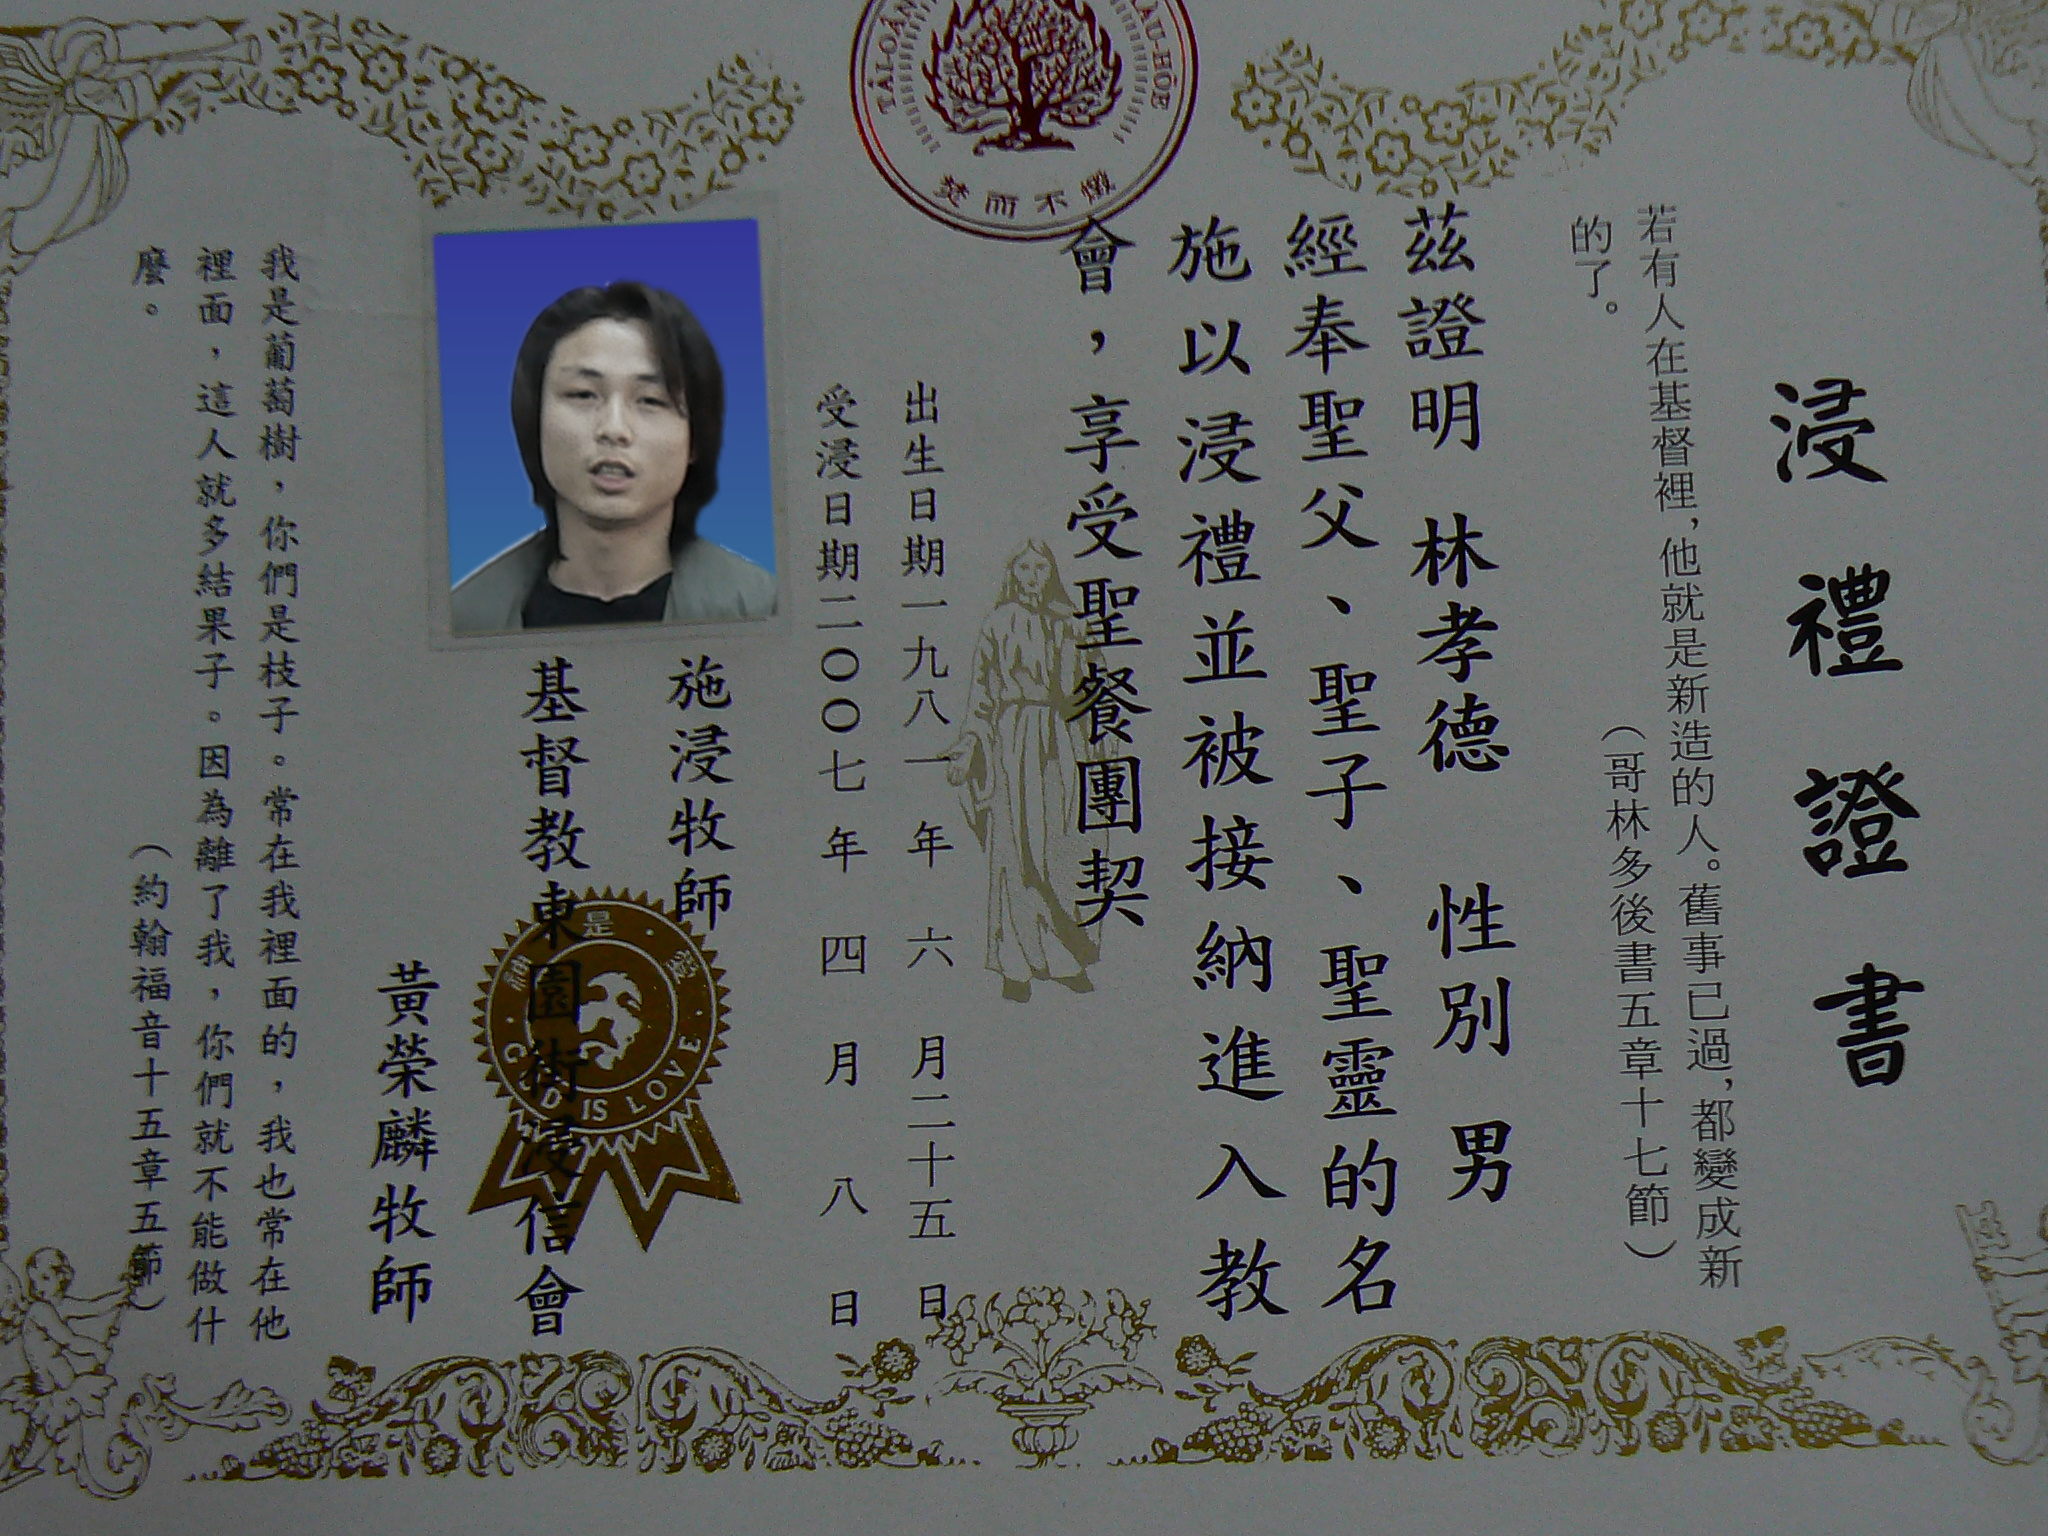 浸禮證書
若有人在基督裡，他就是新造的人。舊事已過，都變成新
的了。
（哥林多後書五章十七節）
茲證明 林孝德 性別 男
經奉聖父、聖子、聖靈的名
施以浸禮並被接納進入教
會，享受聖餐團契
出生日期一九八一年 六 月二十五日
受浸日期二〇〇七年 四 月 八 日
施浸牧師
基督教東園街浸信會
黃榮麟牧師
我是葡萄樹，你們是枝子。常在我裡面的，我也常在他
裡面，這人就多結果子。因為離了我，你們就不能做什
麼。
（約翰福音十五章五節）
焚而不燬
神·是·愛
GOD IS LOVE